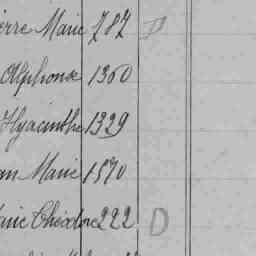 ierre Marie 787 D
Alphonse 1360
Hyacinthe 1329
an Marie 1570
arie Théodore 222 D